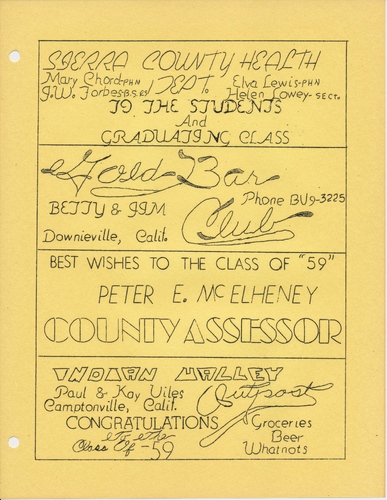 SIERRA COUNTY HEALTH
DEPT.
Mary Chord-PHN
J.W. Forbes B.S. RS
Elva Lewis-PHN
Helen Lowey-SECT.
TO THE STUDENTS
And
GRADUATING CLASS
Gold Bar
Club
Phone BU9-3225
BETTY & JIM
Downieville, Calif.
BEST WISHES TO THE CLASS OF "59"
PETER E. McELHENEY
COUNTY ASSESSOR
INDIAN VALLEY
Outpost
Paul & Kay Viles
Camptonville, Calif.
CONGRATULATIONS
to the
Class Of -59
Groceries
Beer
Whatnots